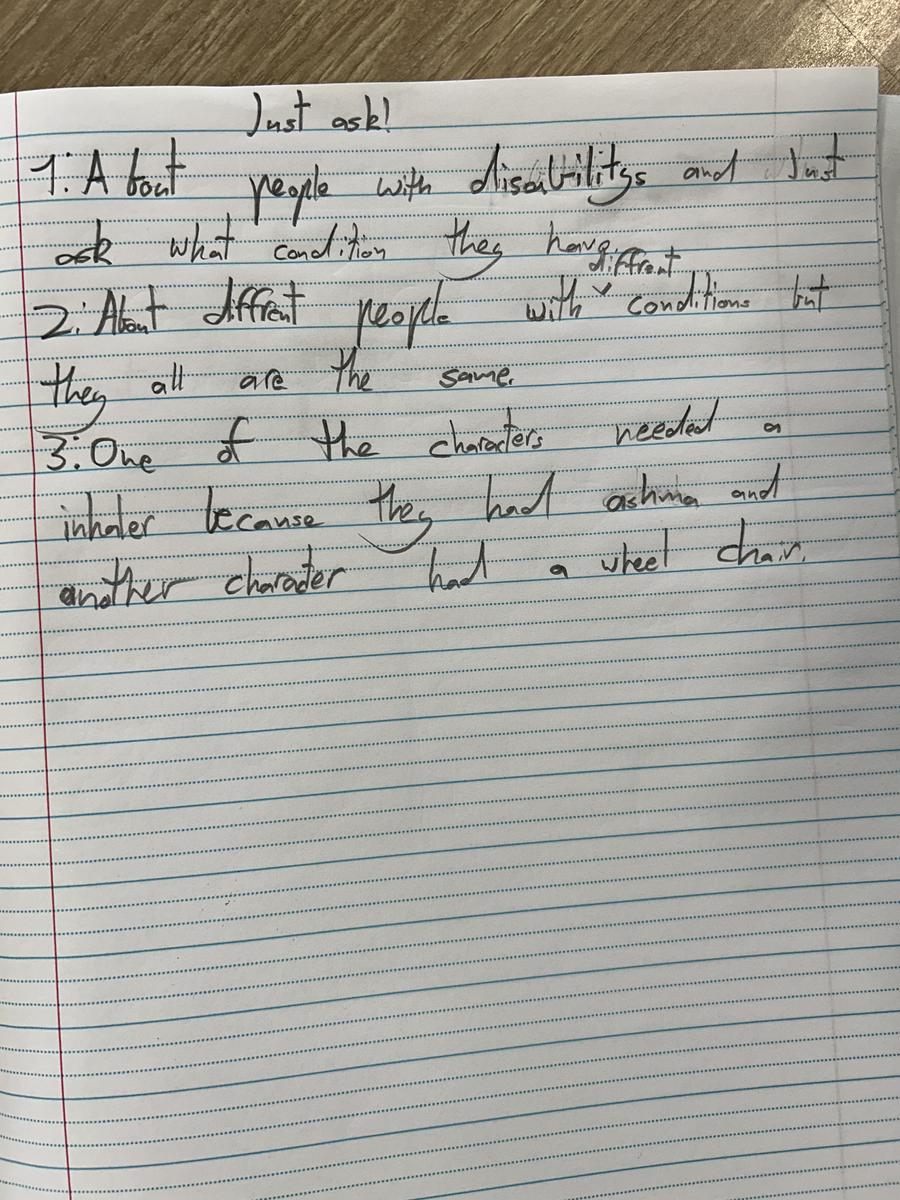 Just ask!
1. About people with disabilitys and Just
ask what condition they have.
diffrent
2. About diffrent people with conditions but
they all are the same.
3. One of the characters needed a
inhaler because they had ashma and
another character had a wheel chair.